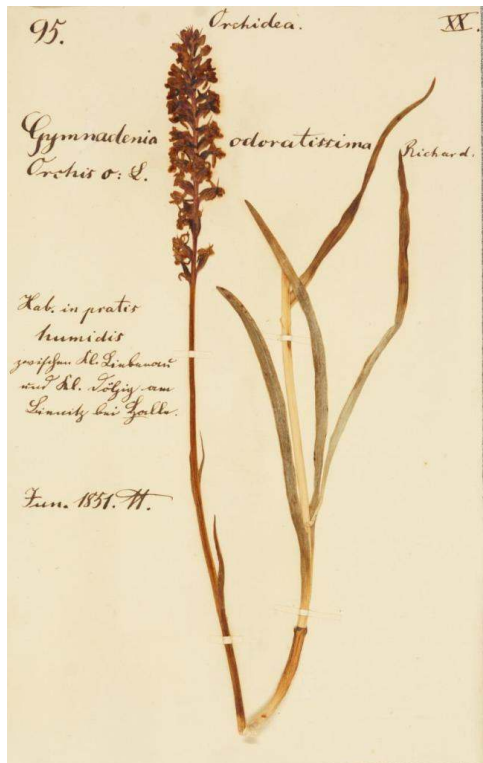 95.
Orchidea.
XX.
Gymnadenia odoratissima Richard.
Orchis o: L.
Hab. in pratis
humidis
zwischen Kl. Liebenau
und Kl. Dölzig am
Bienitz bei Halle.
Jun. 1851. H.